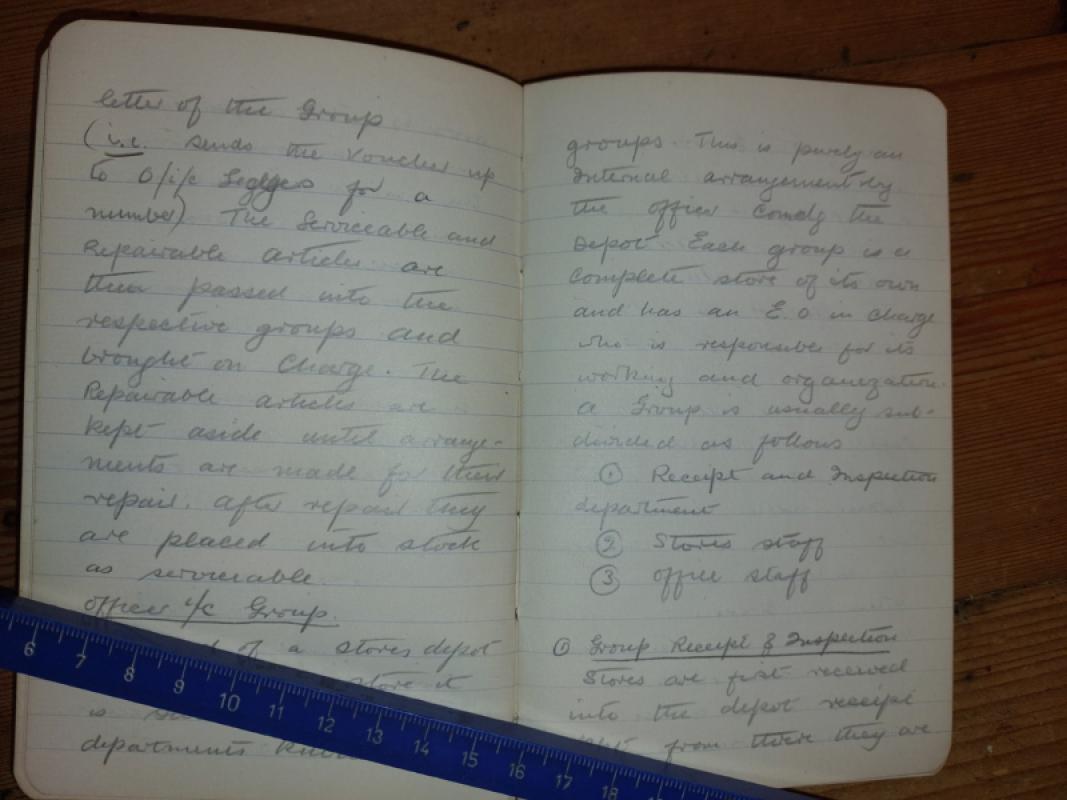 letter of the Group
(i.e. sends the voucher up
to O/i/c Legers for a
number) The Serviceable and
Repairable articles are
then passed into the
respective groups and
brought on Charge. The
Repairable articles are
kept aside until arrange-
ments are made for their
repair. After repair they
are placed into stock
as serviceable.
Officer i/c Group.
of a stores depot
store it
is
departments
groups. This is purely an
Internal arrangement by
the officer Comdg the
Depot. Each group is a
complete store of its own
and has an E.O in charge
who is responsible for its
working and organization.
A Group is usually sub-
divided as follows
① Receipt and Inspection
department
② Stores staff
③ Office staff
① Group Receipt & Inspection
Stores are first received
into the depot receipt
from there they are
6 7 8 9 10 11 12 13 14 15 16 17 18